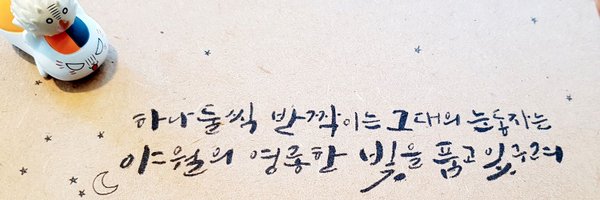 하나 둘씩 반짝이는 그대의 눈동자는
야월의 영롱한 빛을 품고있구려